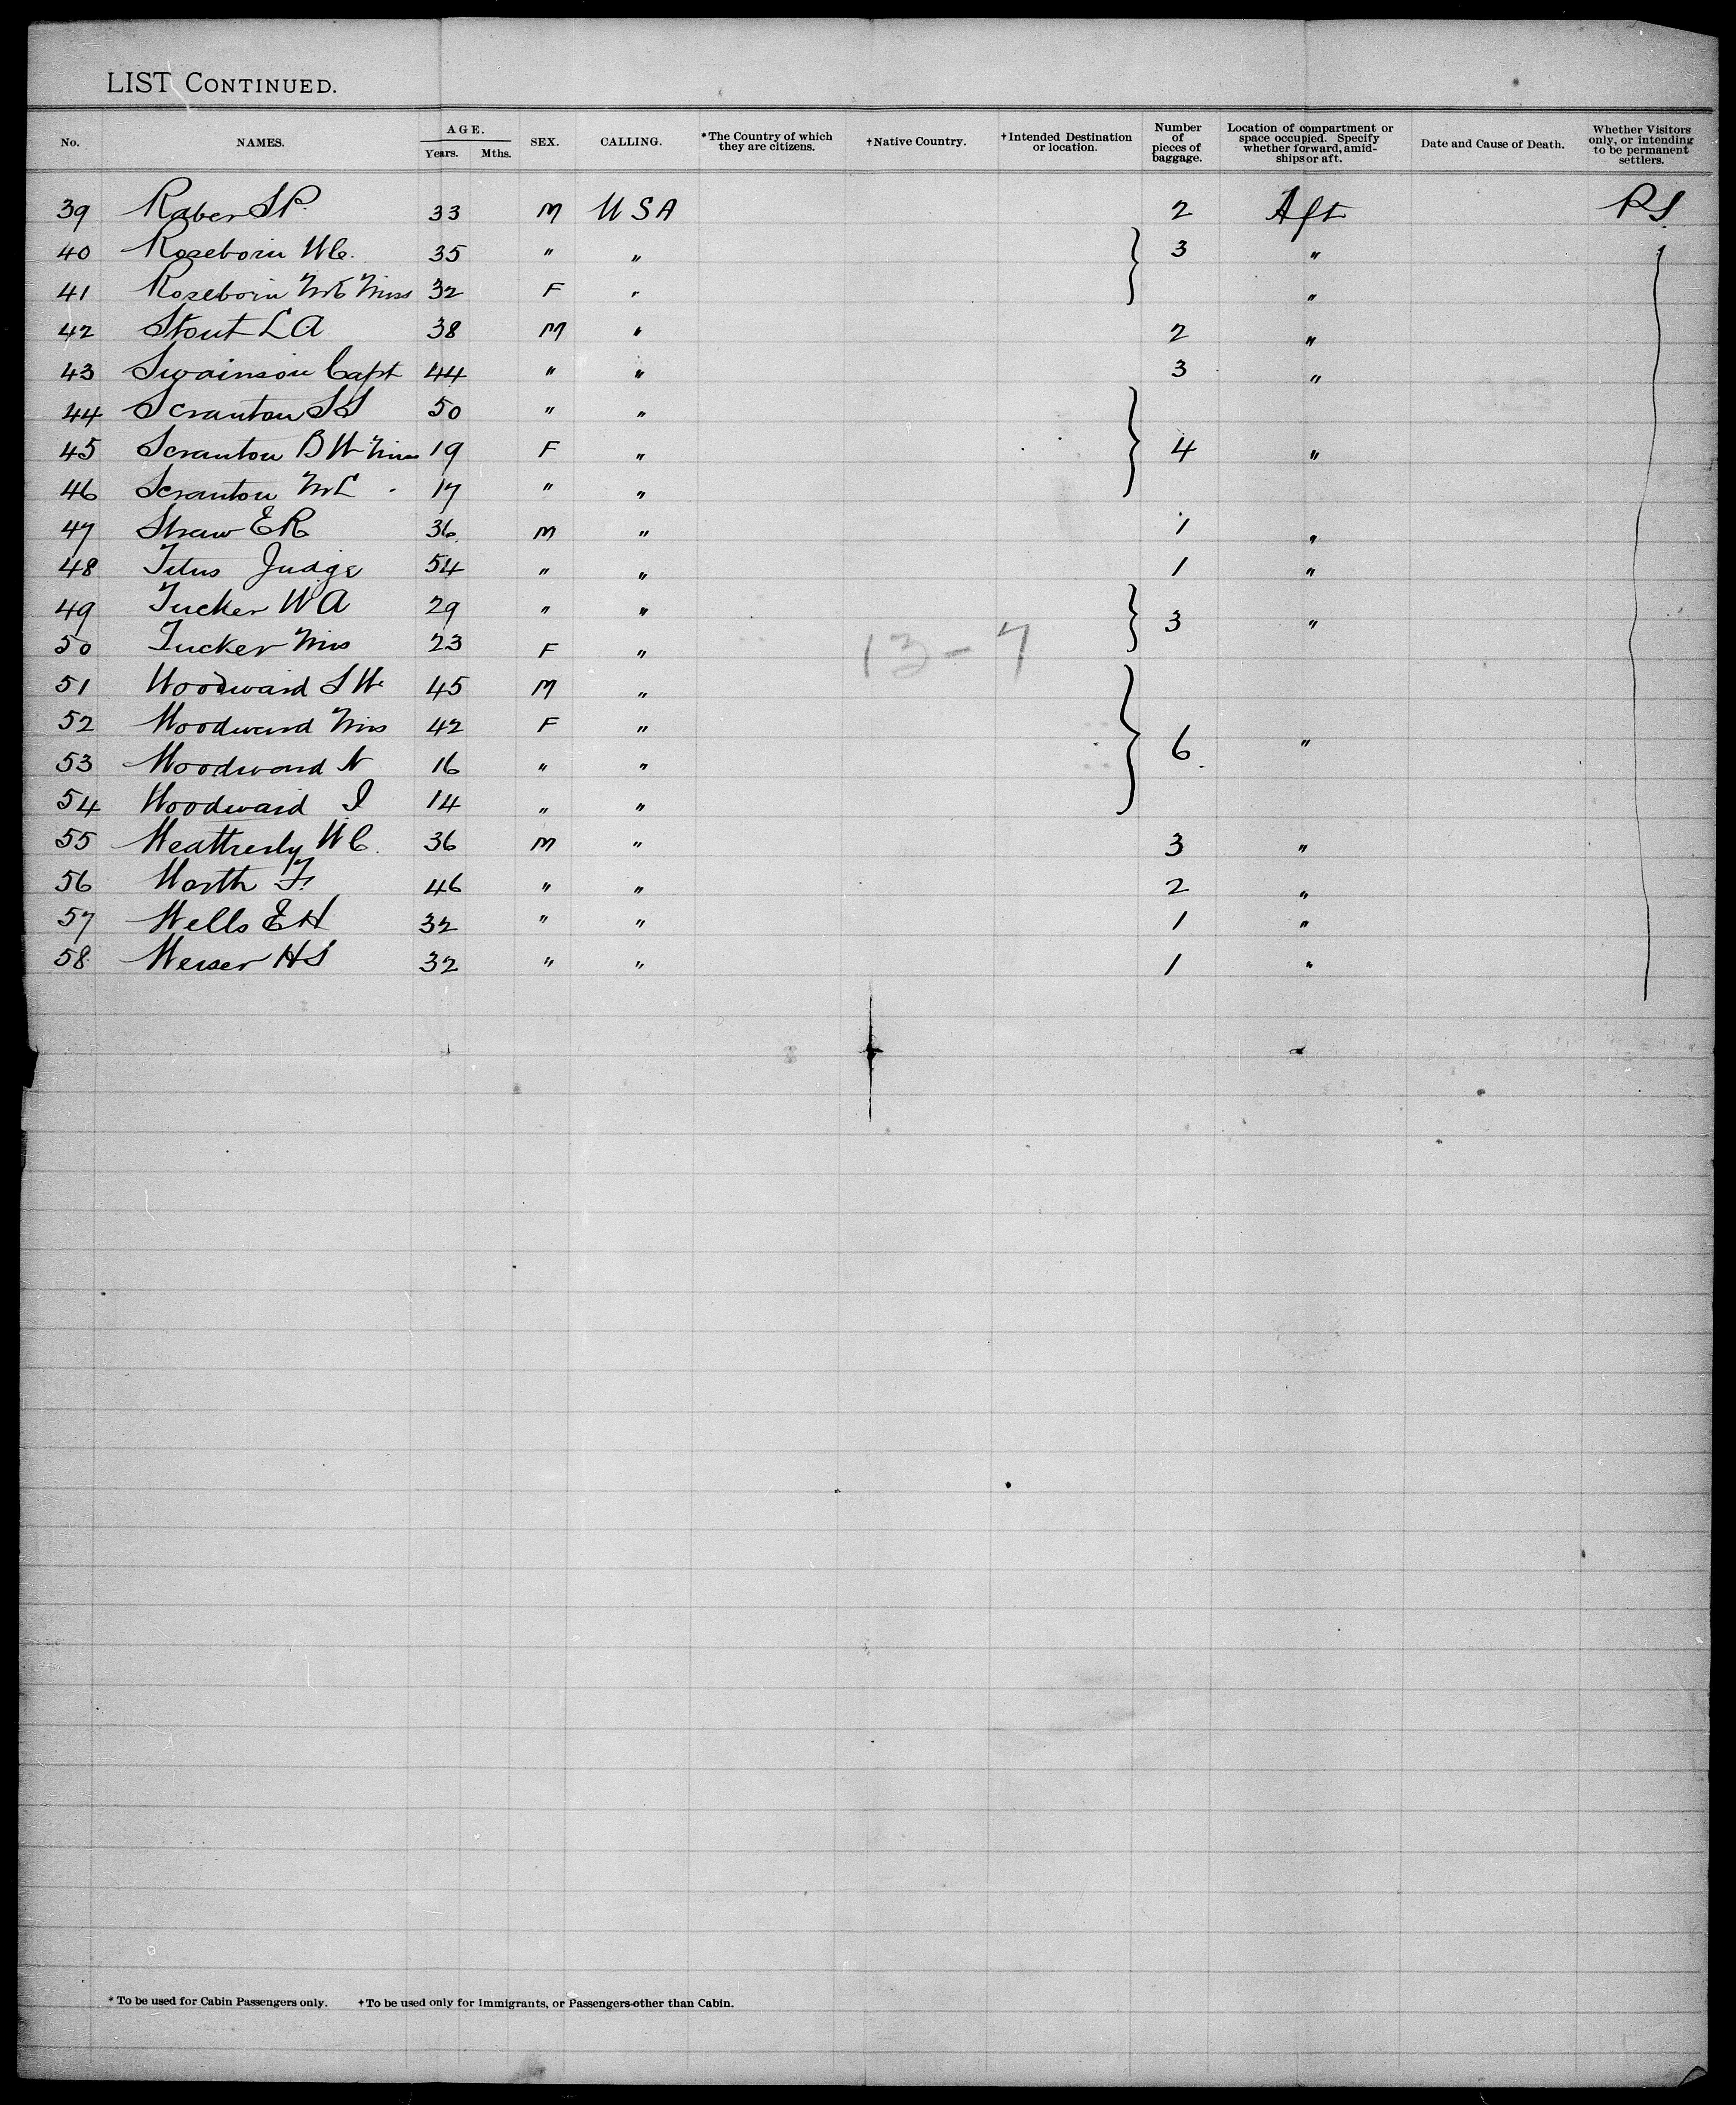 LIST CONTINUED.
No. NAMES. AGE. Years. Mths. SEX. CALLING. *The Country of which they are citizens. †Native Country. †Intended Destination or location. Number of pieces of baggage. Location of compartment or space occupied. Specify whether forward, amidships or aft. Date and Cause of Death. Whether Visitors only, or intending to be permanent settlers.
39 Raber S P. 33 M USA 2 Aft PS
40 Roseborn W C. 35 " " 3 "
41 Roseborn 32 F " "
42 Stout L A 38 M " 2 "
43 Swainson Capt 44 " " 3 "
44 Scranton S S 50 " "
45 Scranton B W Miss 19 F " 4 "
46 Scranton M L 17 " "
47 Straw E R 36 M " 1 "
48 Titus Judge 54 " " 1 "
49 Tucker W A 29 " " 3 "
50 Tucker Mrs 23 F "
13 - 7
51 Woodward S W 45 M "
52 Woodward Mrs 42 F " 6 "
53 Woodward N 16 " "
54 Woodward I 14 " "
55 Weatherly W C. 36 M " 3 "
56 Worth F. 46 " " 2 "
57 Wells E H 32 " " 1 "
58 Weiser H S 32 " " 1 "
* To be used for Cabin Passengers only. †To be used only for Immigrants, or Passengers other than Cabin.